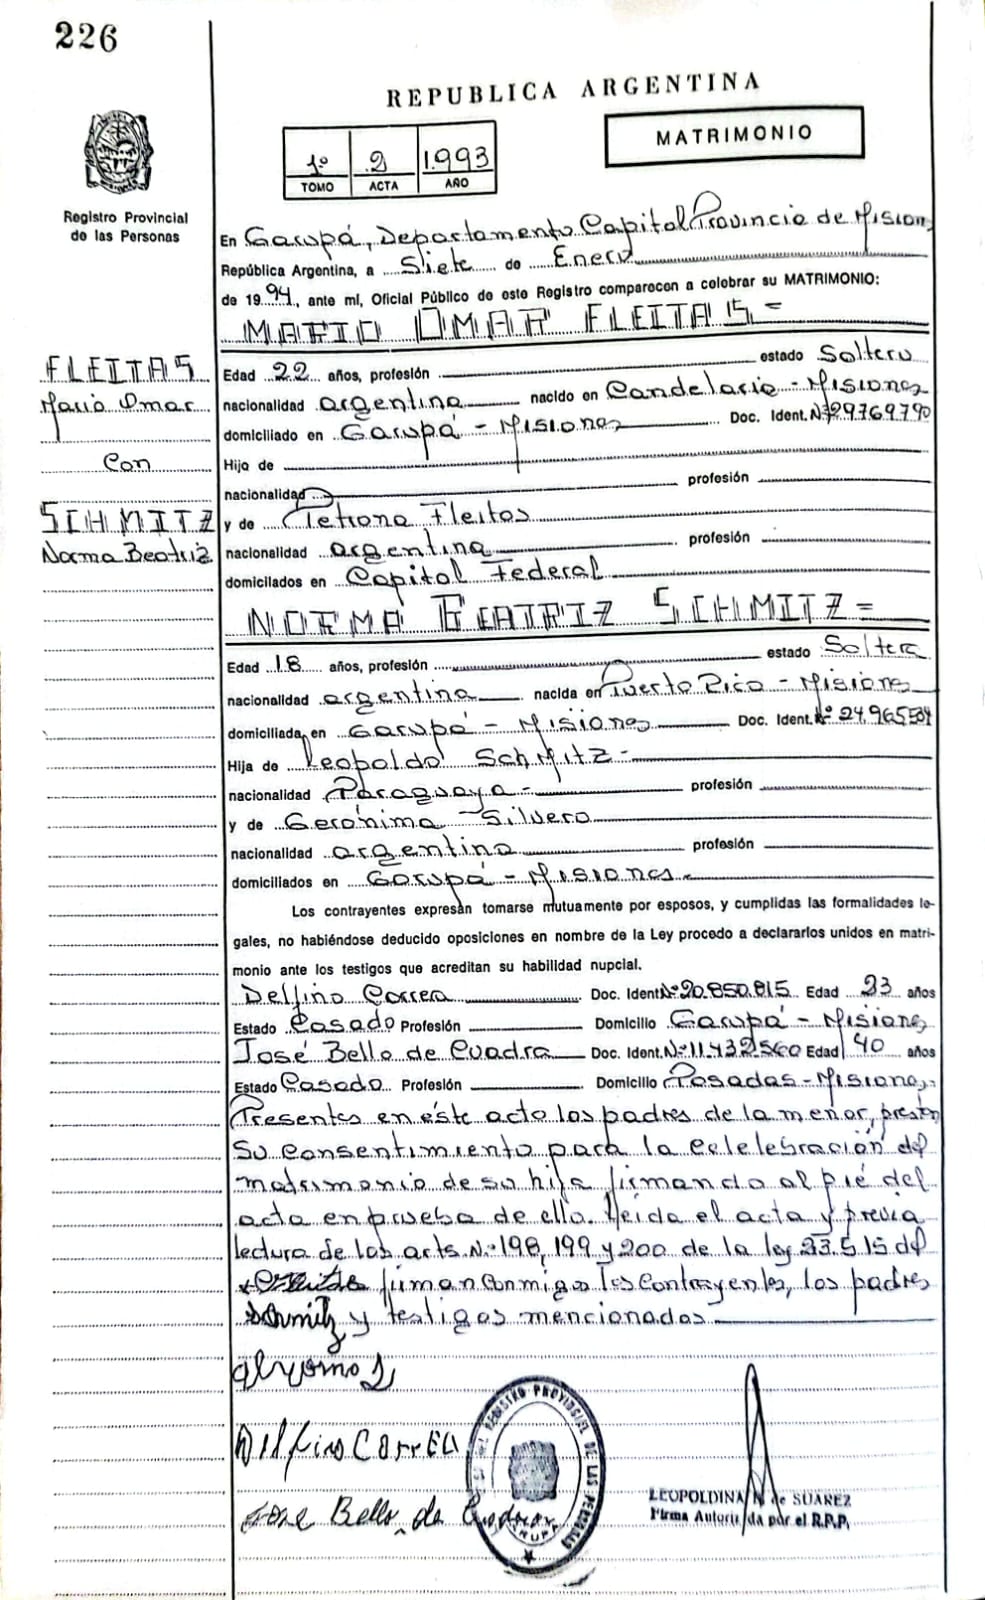 226
REPUBLICA ARGENTINA
MATRIMONIO
1º 2 1.993
TOMO ACTA AÑO
Registro Provincial
de las Personas
En Garupá, Departamento Capital Provincia de Misiones
República Argentina, a Siete de Enero
de 1994, ante mí, Oficial Público de este Registro comparecen a celebrar su MATRIMONIO:
MARIO OMAR FLEITAS =
FLEITAS
Mario Omar
Con
SCHMITZ
Norma Beatriz
Edad 22 años, profesión estado Soltero
nacionalidad argentina nacido en Candelaria - Misiones
domiciliado en Garupá - Misiones Doc. Ident. Nº 29769790
Hijo de
nacionalidad profesión
y de Petrona Fleitas
nacionalidad argentina profesión
domiciliados en Capital Federal
NORMA BEATRIZ SCHMITZ =
Edad 18 años, profesión estado Soltera
nacionalidad argentina nacida en Puerto Rico - Misiones
domiciliada en Garupá - Misiones Doc. Ident. Nº
Hija de Leopoldo SchMitz -
nacionalidad Paraguaya - profesión
y de Gerónima Silvero
nacionalidad argentina profesión
domiciliados en Garupá - Misiones.
Los contrayentes expresan tomarse mutuamente por esposos, y cumplidas las formalidades le-
gales, no habiéndose deducido oposiciones en nombre de la Ley procedo a declararlos unidos en matri-
monio ante los testigos que acreditan su habilidad nupcial.
Delfino Correa Doc. Ident. Nº 20.850.815 Edad 23 años
Estado Casado Profesión Domicilio Garupá - Misiones
José Bello de Cuadra Doc. Ident. Nº 11.432560 Edad 40 años
Estado Casado Profesión Domicilio Posadas - Misiones.
Presentes en éste acto los padres de la menor, prestan
Su consentimiento para la celelebración del
matrimonio de su hija firmando al pié del
acta en prueba de ello. Leida el acta y previa
lectura de los arts. Nº 198, 199 y 200 de la ley 23.515 del
firman conmigo los contrayentes, los padres
y testigos mencionados
Schmitz
Delfino CorrEa
Jose Bello de Cuadra
REGISTRO PROVINCIAL DE LAS PERSONAS
GARUPA
LEOPOLDINA N. de SUAREZ
Firma Autorizada por el R.P.P.